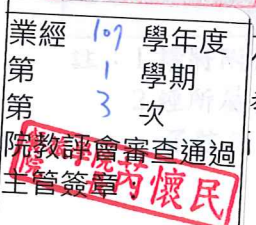 業經 107 學年度
第 1 學期
第 3 次
院教評會審查通過
主管簽章
懷民